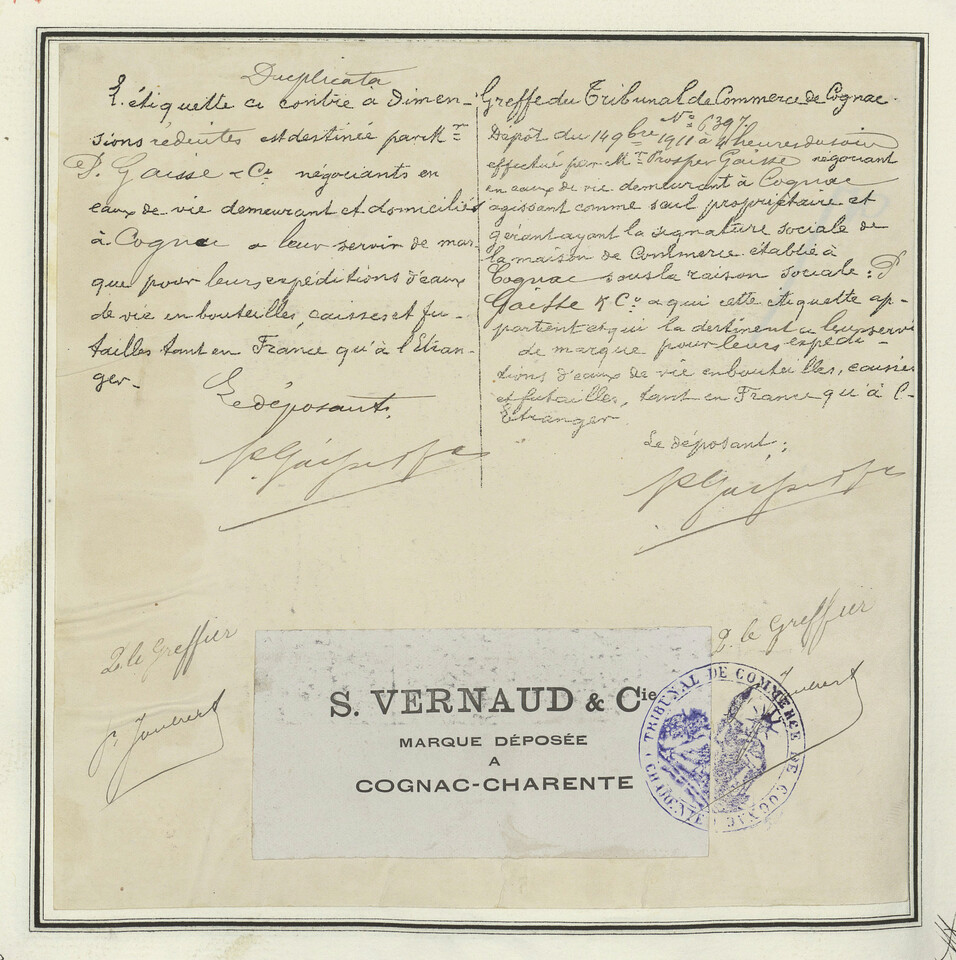 Duplicata
L'étiquette ci contre à dimen-
sions réduites est destinée par Mr
P. Gaisse & Cie négociants en
eaux de vie demeurant et domiciliés
à Cognac a leur servir de mar-
que pour leurs expéditions d'eaux
de vie en bouteilles, caisses et fu-
tailles tant en France qu'à l'Étran-
ger.
Le déposant.
P Gaisse & Co
Greffe du Tribunal de Commerce de Cognac.
No 6397.
Dépôt du 14 9bre 1911 à 4 heures du soir
effectué par Mr Prosper Gaisse négociant
en eaux de vie demeurant à Cognac
agissant comme seul propriétaire et
gérant ayant la signature sociale de
la maison de Commerce établie à
Cognac sous la raison sociale: P
Gaisse & Co a qui cette étiquette ap-
partient et qui la destinent a leur servi
de marque pour leurs expédi-
tions d'eaux de vie en bouteilles, caisses
et futailles, tant en France qu'à l'-
Etranger
Le déposant:
P Gaisse & Co
P. le Greffier
P. le Greffier
S. VERNAUD & Cie
MARQUE DÉPOSÉE
A
COGNAC-CHARENTE
TRIBUNAL DE COMMERCE DE COGNAC
CHARENTE